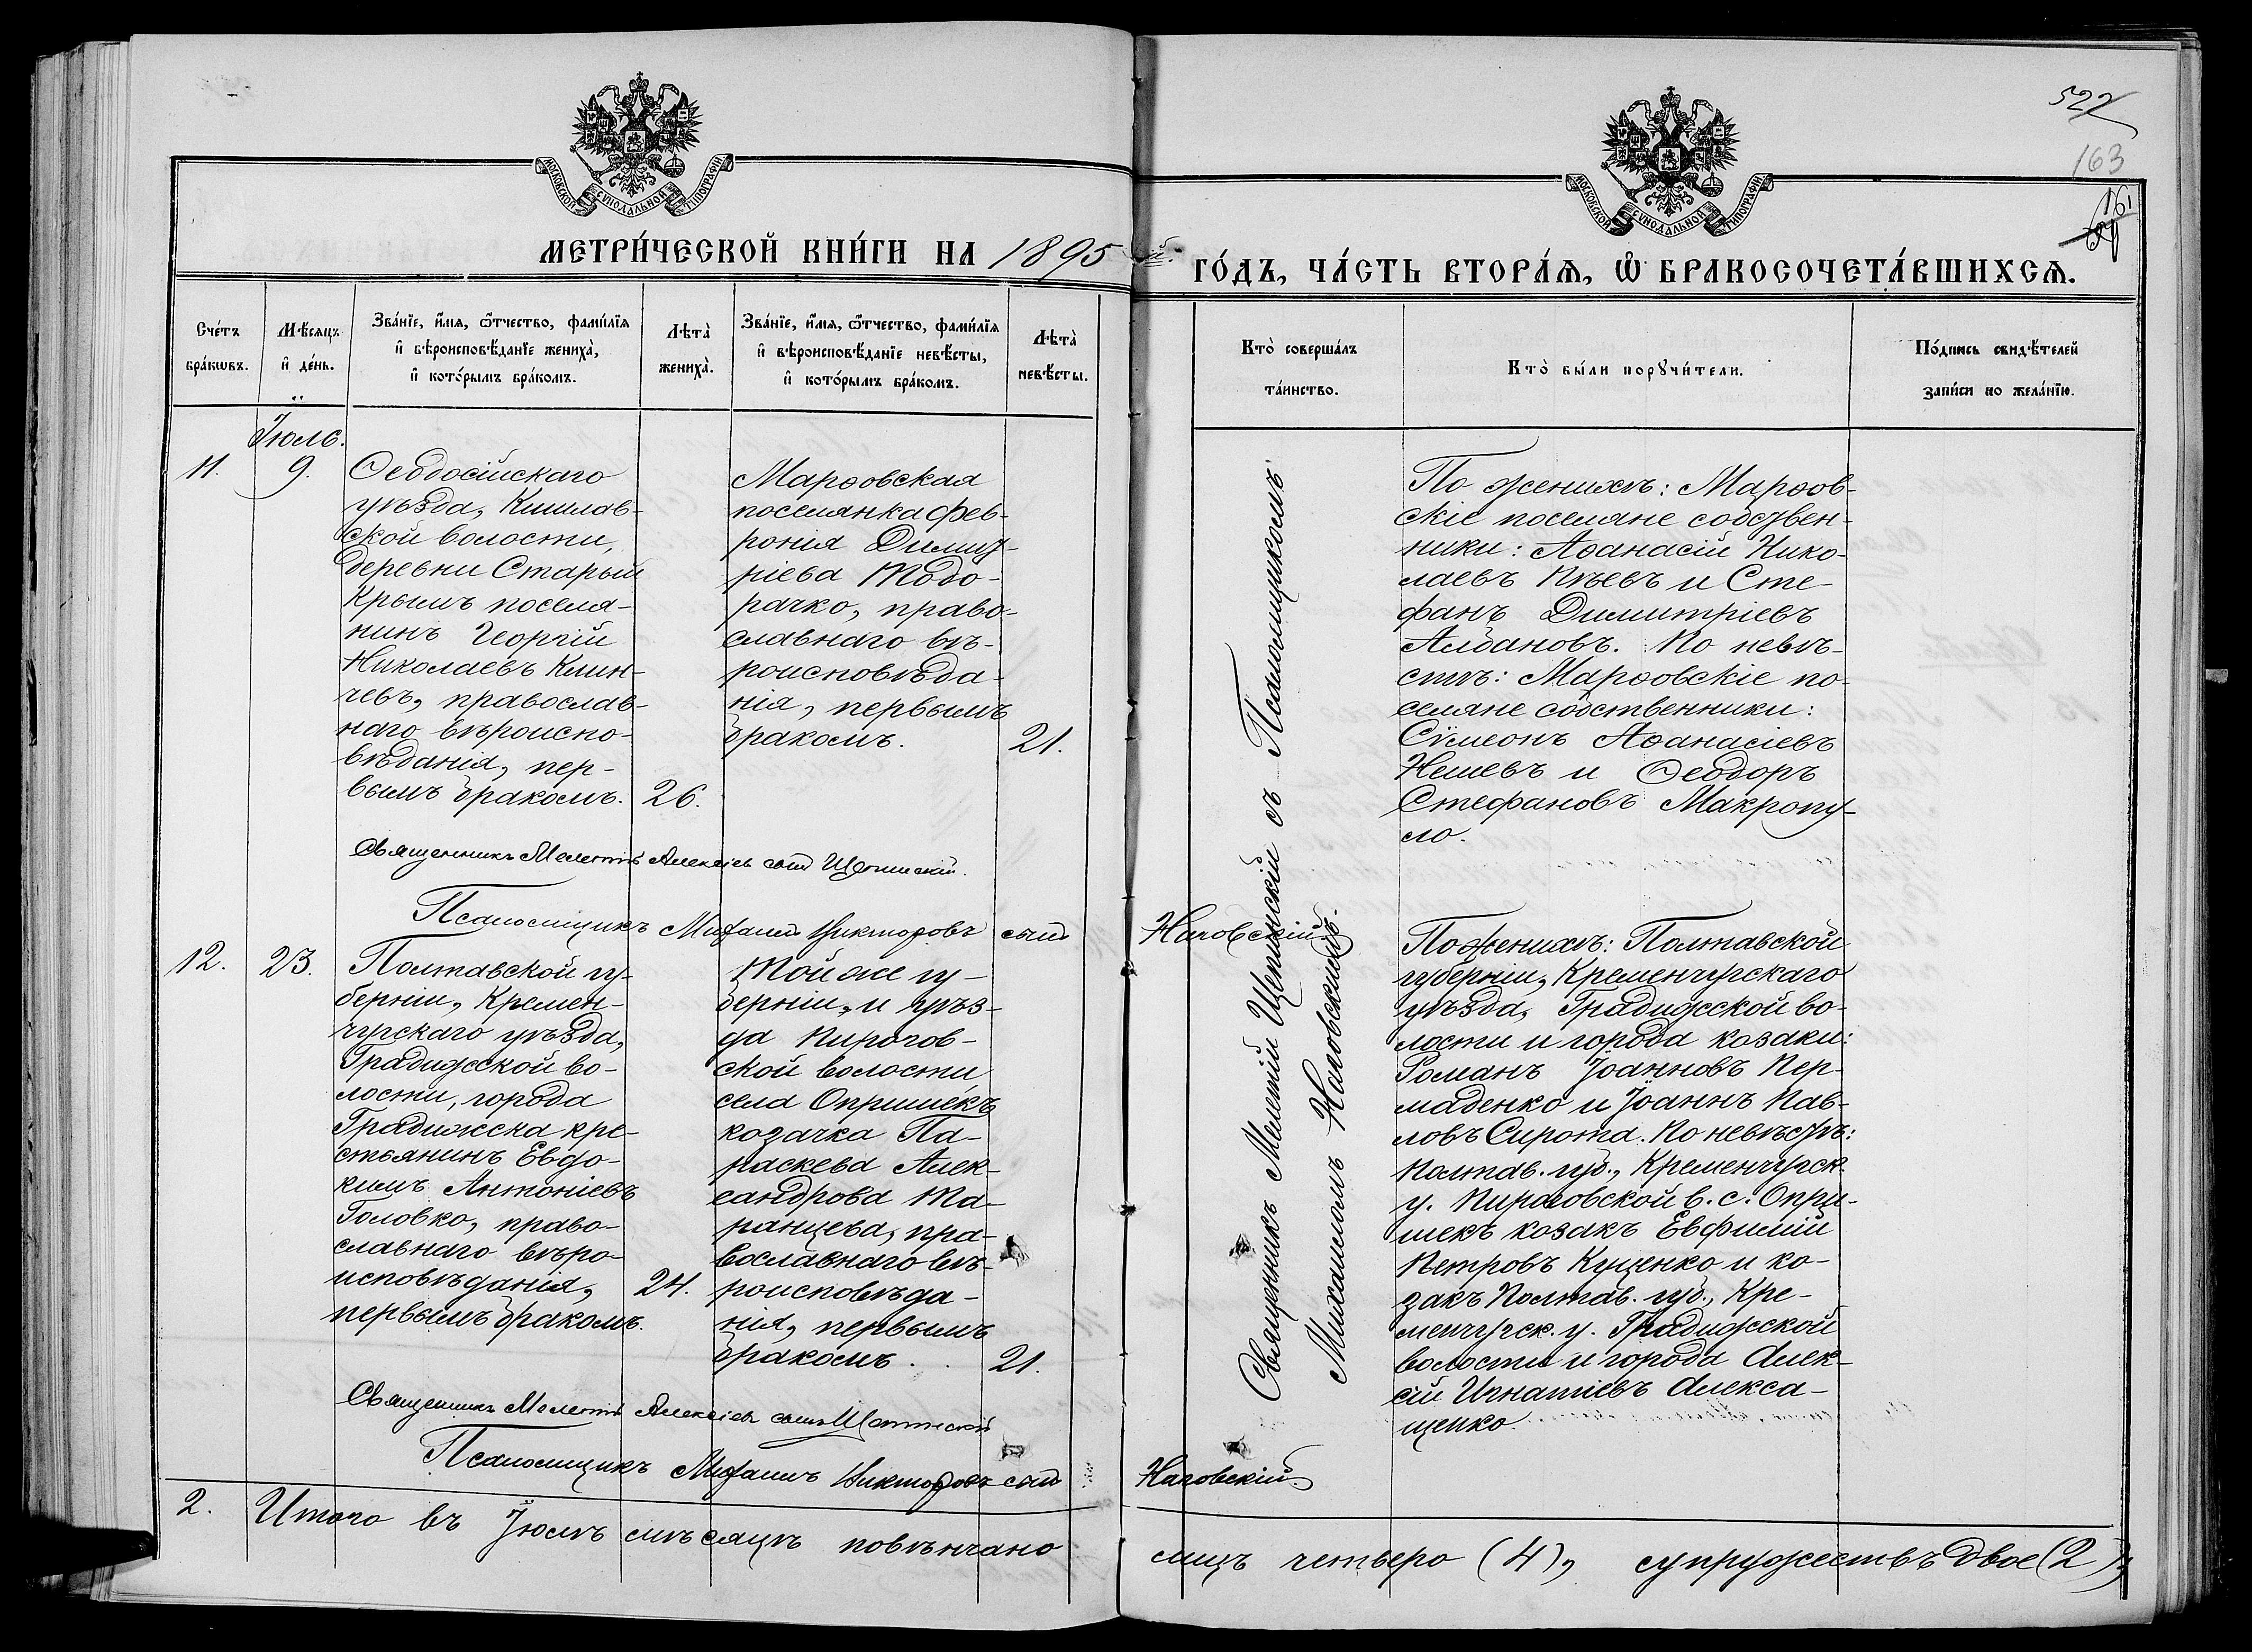 522
163
161
МОСКОВСКОЙ СѴНОДАЛЬНОЙ ТИПОГРАФІИ
МОСКОВСКОЙ СѴНОДАЛЬНОЙ ТИПОГРАФІИ
МЕТРИ́ЧЕСКОЙ КНИ́ГИ НА 1895 й.
ГО́ДЪ, ЧА́СТЬ ВТОРА́Ѧ, Ѽ БРАКОСОЧЕТА́ВШИХСѦ.
Сче́тъ
бра́кѡвъ.
Мѣ́сяцъ
и҆ де́нь.
Зва́нїе, и҆́мѧ, ѻ҆́тчество, фами́лїѧ
и҆ вѣроисповѣ́данїе жениха̀,
и҆ кото́рымъ бра́комъ.
Лѣта̀
жениха̀.
Зва́нїе, и҆́мѧ, ѻ҆́тчество, фами́лїѧ
и҆ вѣроисповѣ́данїе невѣ́сты,
и҆ кото́рымъ бра́комъ.
Лѣта̀
невѣ́сты.
Кто̀ соверша́лъ
та́инство.
Кто̀ бы́ли порꙋчи́тели.
По́дпись свидѣ́телей
за́писи по жела́нїю.
Іюль.
11.
9.
Ѳеодосійскаго
уѣзда, Кишлав-
ской волости,
деревни Старый
Крымъ поселя-
нинъ Георгій
Николаевъ Клин-
чевъ, православ-
наго вѣроиспо-
вѣданія, пер-
вымъ бракомъ.
26.
Марѳовская
поселянка Фев-
ронія Димит-
ріева Тодо-
рачко, право-
славнаго вѣ-
роисповѣда-
нія, первымъ
бракомъ.
21.
Священникъ Мелетій Щепинскій съ Псаломщикомъ
Михаиломъ Наговскимъ.
По женихѣ: Марѳов-
скіе поселяне собствен-
ники: Аѳанасій Нико-
лаевъ Пѣевъ и Сте-
фанъ Димитріевъ
Алдановъ. По невѣ-
стѣ: Марѳовскіе по-
селяне собственники:
Сѵмеонъ Аѳанасіевъ
Нешевъ и Ѳеодоръ
Стефановъ Макропу-
ло.
Священникъ Мелетій Алексіевъ сынъ Щепинскій.
Псаломщикъ Михаилъ Викторовъ сынъ Наговскій.
12.
23.
Полтавской гу-
берніи, Кремен-
чугскаго уѣзда,
Градижской во-
лости, города
Градижска кре-
стьянинъ Евдо-
кимъ Антоніевъ
Головко, право-
славнаго вѣро-
исповѣданія,
первымъ бракомъ.
24.
Той же гу-
берніи, и уѣз-
да Пирогов-
ской волости
села Опришекъ
козачка Па-
раскева Алек-
сандрова Та-
ранцева, пра-
вославнаго вѣ-
роисповѣда-
нія, первымъ
бракомъ.
21.
По женихѣ: Полтавской
губерніи, Кременчугскаго
уѣзда, Градижской во-
лости и города козаки:
Романъ Іоанновъ Пер-
маденко и Іоаннъ Пав-
ловъ Сирота. По невѣстѣ:
Полтав. губ., Кременчугск.
у. Пироговской в. с. Опри-
шекъ козакъ Евфимій
Петровъ Куценко и ко-
закъ Полтав. губ., Кре-
менчугск. у. Градижской
волости и города Алек-
сій Игнатіевъ Алекса-
щенко.
Священникъ Мелетій Алексіевъ сынъ Щепинскій
Псаломщикъ Михаилъ Викторовъ сынъ Наговскій.
2. Итого въ Іюлѣ мѣсяцѣ повѣнчано лицъ четверо (4), супружествъ двое (2),